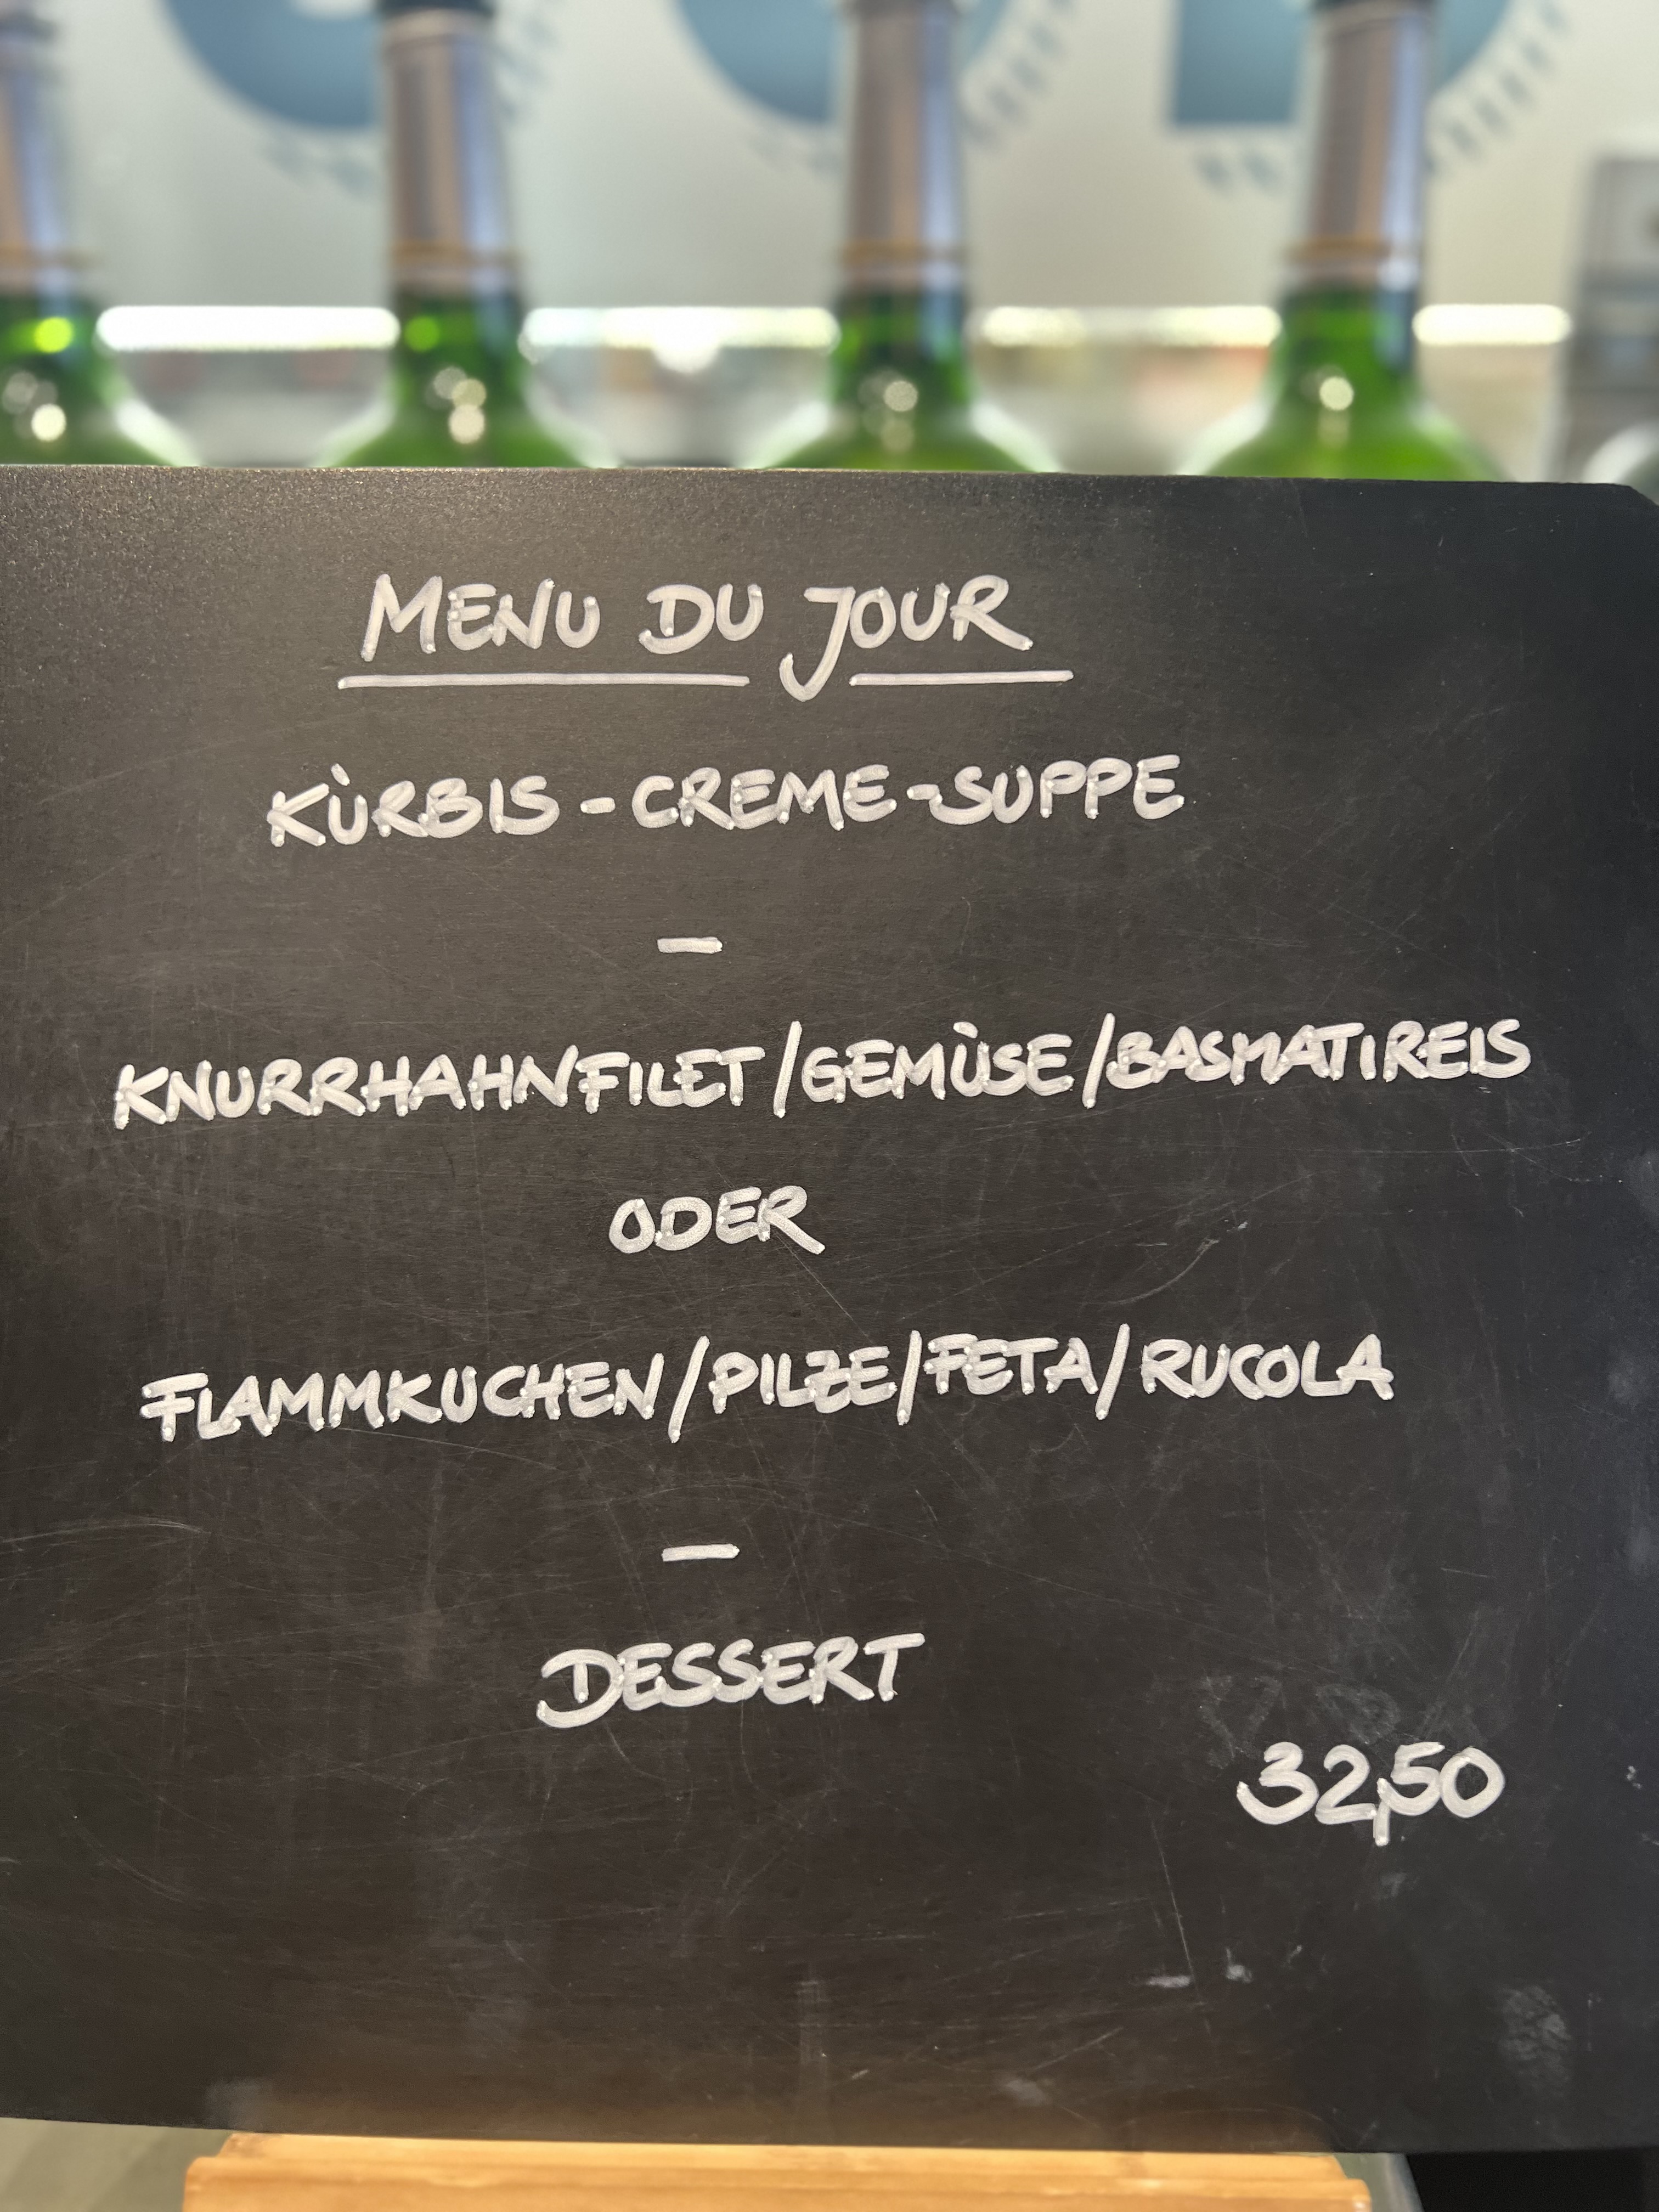 MENU DU JOUR
KÜRBIS-CREME-SUPPE
—
KNURRHAHNFILET/GEMÜSE/BASMATIREIS
ODER
FLAMMKUCHEN/PILZE/FETA/RUCOLA
—
DESSERT
32,50